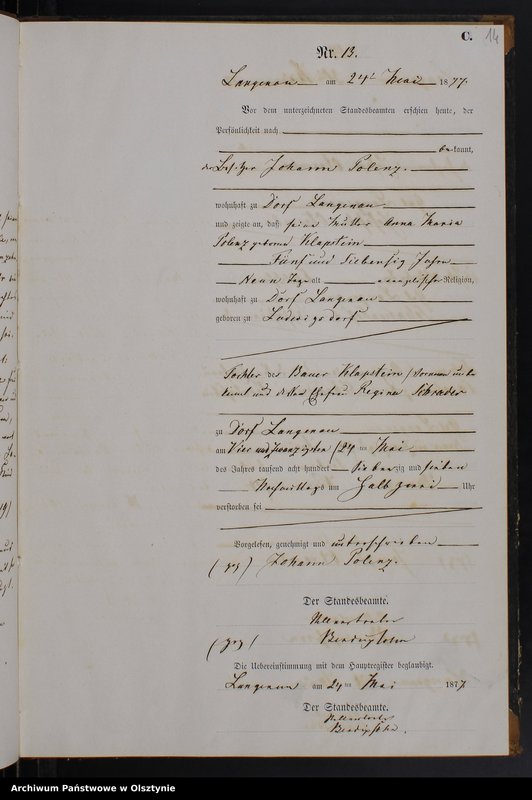 C.
14
Nr. 13.
Langenau am 24t Mai 1877.
Vor dem unterzeichneten Standesbeamten erschien heute, der
Persönlichkeit nach
bekannt,
der Besitzer Johann Polenz.
wohnhaft zu Dorf Langenau
und zeigte an, daß seine Mutter Anna Maria
Polenz geborne Klapstein
Fünf und Siebenzig Jahre
Neun Tage alt evangelischer Religion,
wohnhaft zu Dorf Langenau
geboren zu Ludwigsdorf
Tochter des Bauer Klapstein (Vorname unbe
kannt und dessen Ehefrau Regina Schrader
zu Dorf Langenau
am Vier und zwanzigsten (24 ten Mai
des Jahres tausend acht hundert siebenzig und sieben
Nachmittags um Halb zwei Uhr
verstorben sei
Vorgelesen, genehmigt und unterschrieben
(gez) Johann Polenz.
Der Standesbeamte.
(gez)
Die Uebereinstimmung mit dem Hauptregister beglaubigt.
Langenau am 24 ten Mai 1877
Der Standesbeamte.
Archiwum Państwowe w Olsztynie